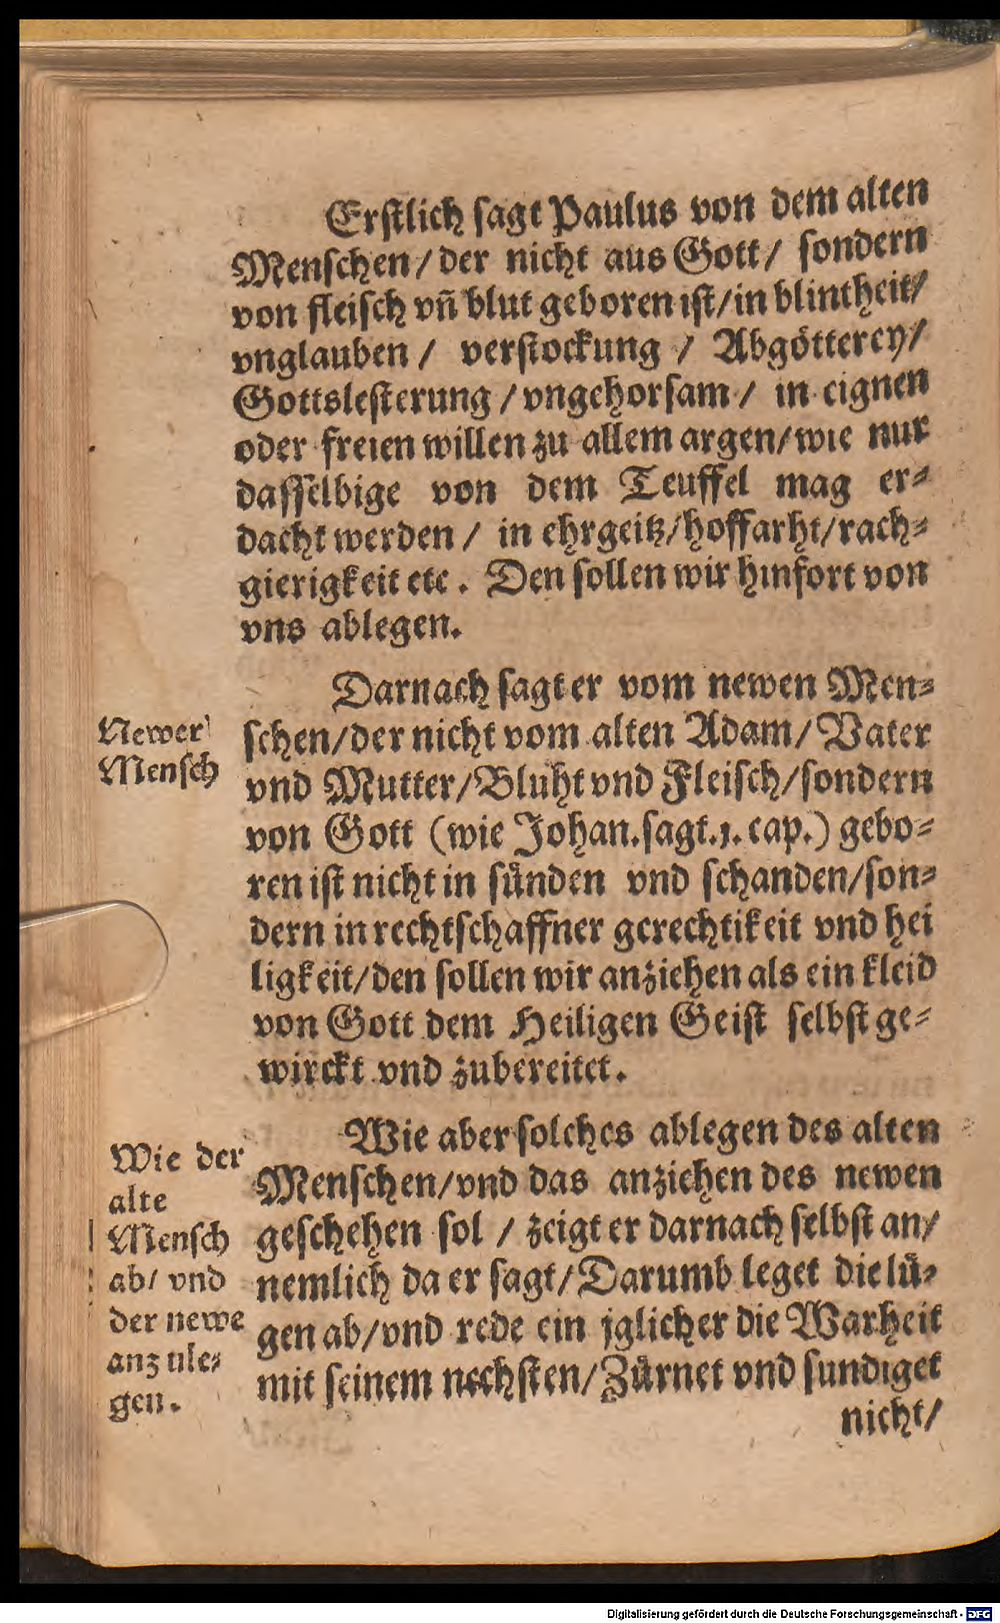 Erſtlich ſagt Paulus von dem alten
Menſchen/ der nicht aus Gott/ ſondern
von fleiſch vn̄ blut geboren iſt/ in blintheit/
vnglauben/ verſtockung/ Abgötterey/
Gottsleſterung/ vngehorſam/ in eignen
oder freien willen zu allem argen/ wie nur
daſſelbige von dem Teuffel mag er⸗
dacht werden/ in ehrgeitz/ hoffarht/ rach⸗
gierigkeit etc. Den ſollen wir hinfort von
vns ablegen.
Darnach ſagt er vom newen Men⸗
Newer
Menſch
ſchen/ der nicht vom alten Adam/ Vater
vnd Mutter/ Bluht vnd Fleiſch/ ſondern
von Gott (wie Johan. ſagt. 1. cap.) gebo⸗
ren iſt nicht in ſünden vnd ſchanden/ ſon⸗
dern in rechtſchaffner gerechtikeit vnd hei
ligkeit/ den ſollen wir anziehen als ein kleid
von Gott dem Heiligen Geiſt ſelbſt ge⸗
wirckt vnd zubereitet.
Wie aber ſolches ablegen des alten
Wie der
alte
Menſch
ab/ vnd
der newe
anzule⸗
gen.
Menſchen/ vnd das anziehen des newen
geſchehen ſol/ zeigt er darnach ſelbſt an/
nemlich da er ſagt/ Darumb leget die lü⸗
gen ab/ vnd rede ein jglicher die Warheit
mit ſeinem nechſten/ Zürnet vnd ſundiget
nicht/
Digitalisierung gefördert durch die Deutsche Forschungsgemeinschaft - DFG